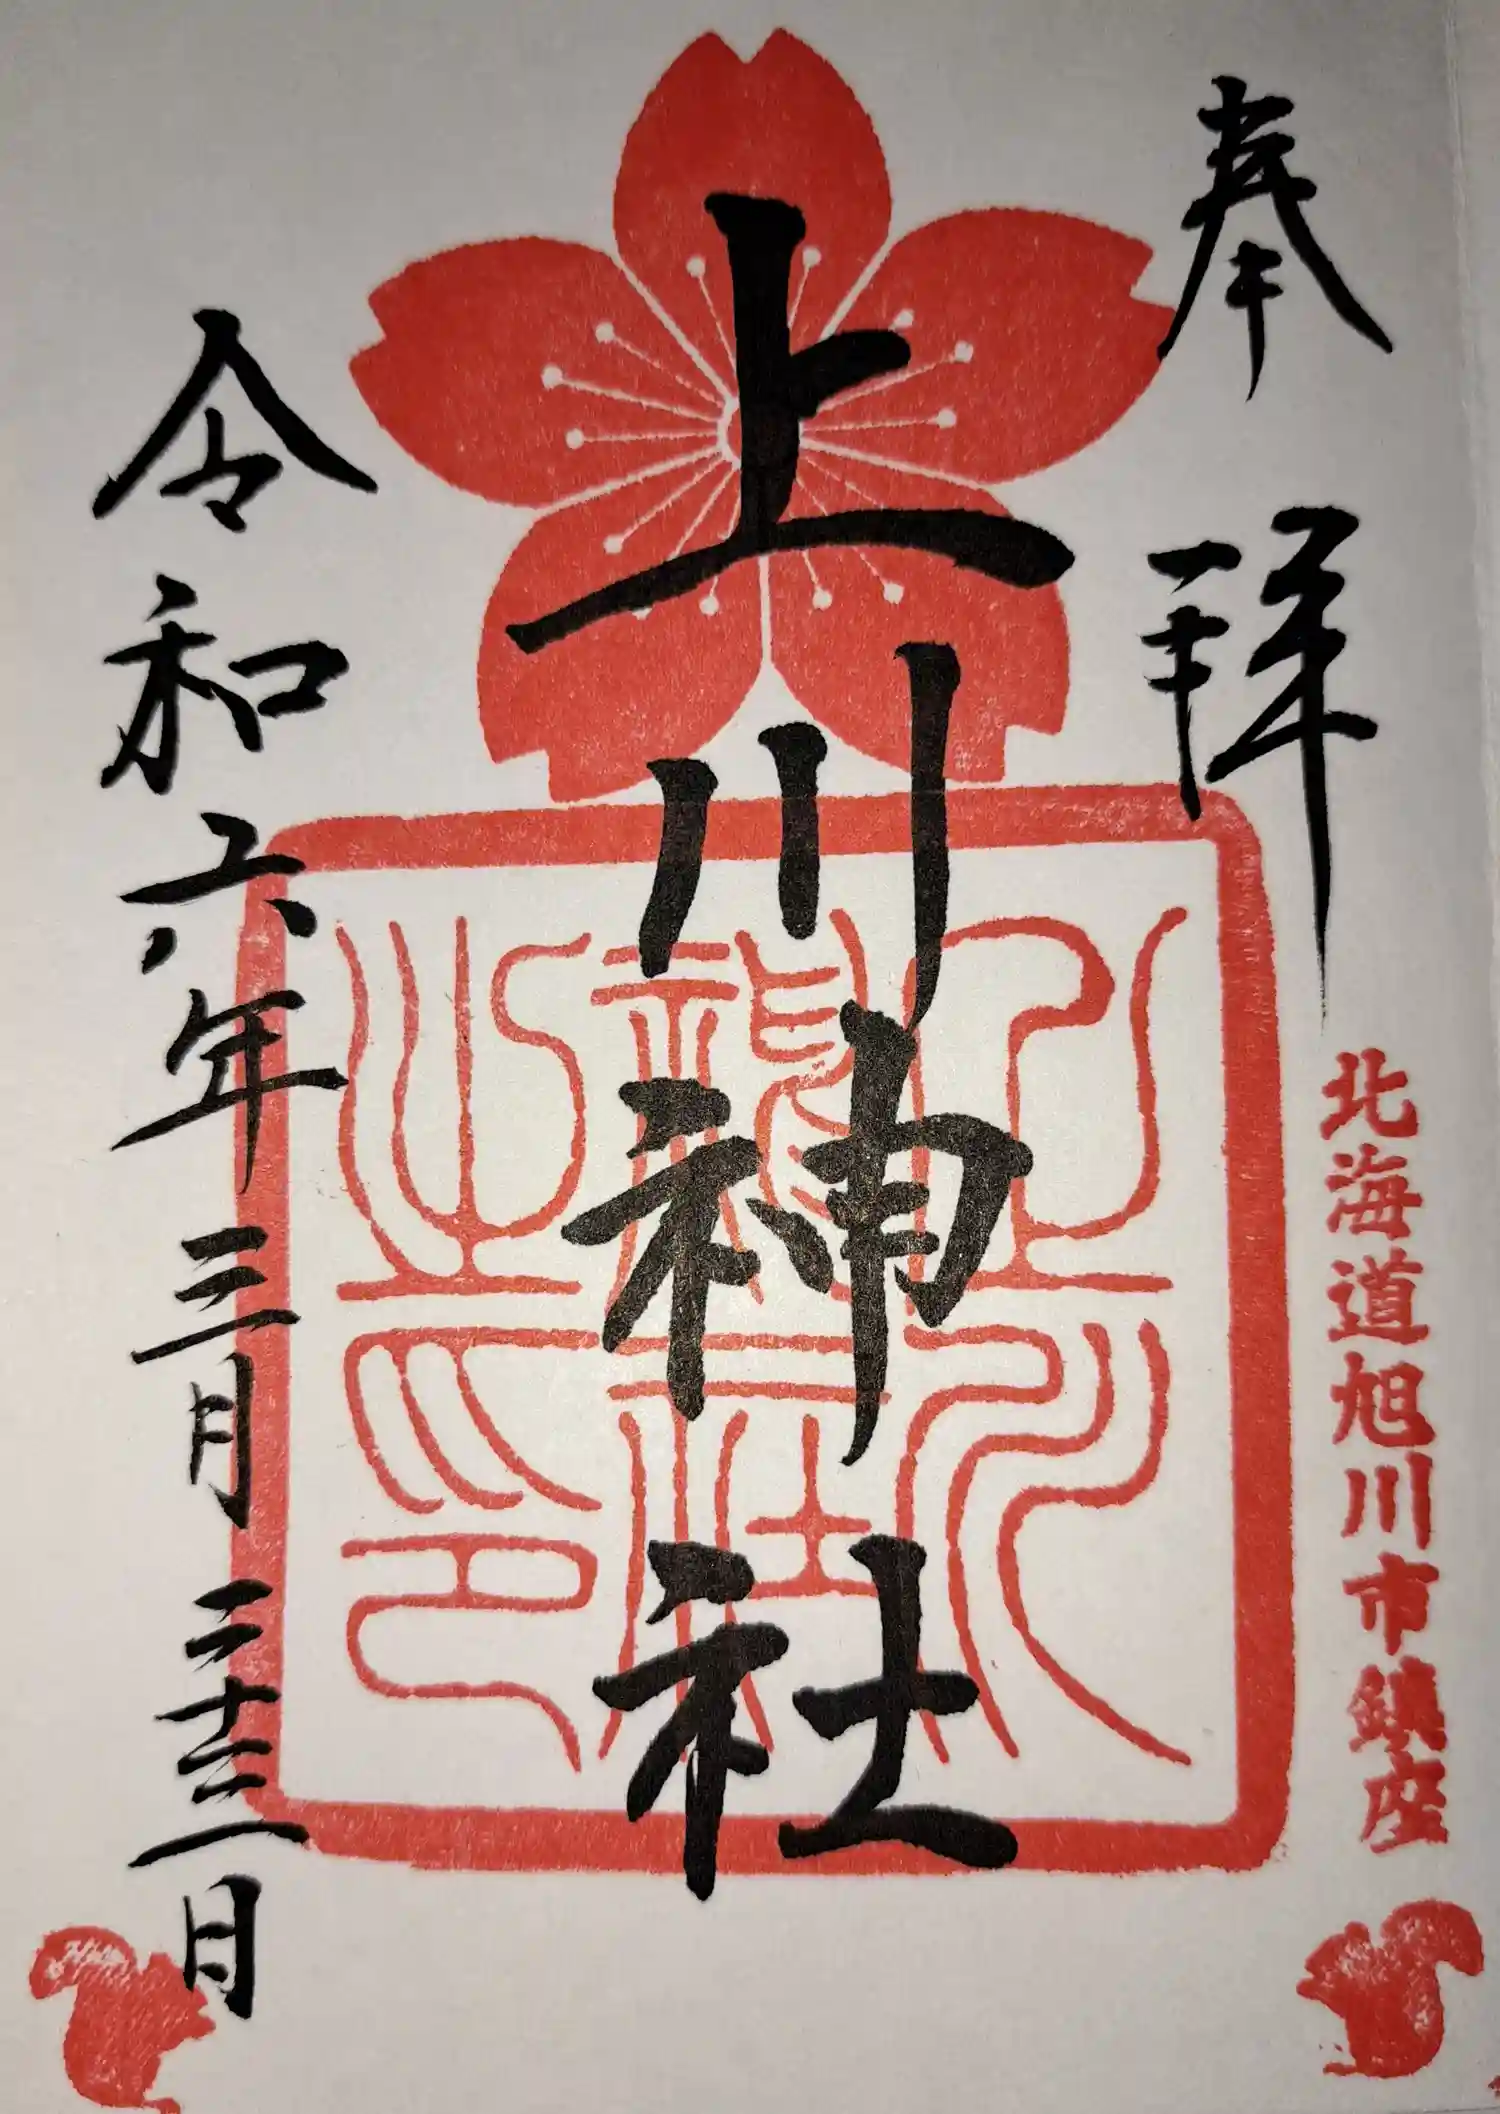 奉拝
北海道旭川市鎮座
上川神社
上川
神社
之印
令和六年三月二十三日